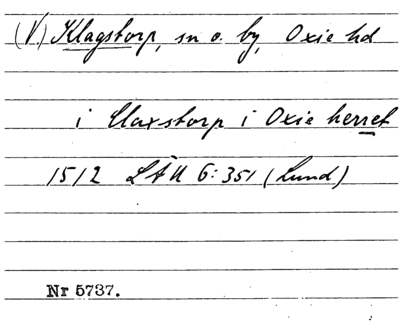 (V.) Klagstorp, sn o. by, Oxie hd
i Claxstorp i Oxie herret
1512 LÄU 6:351 (Lund)
Nr 5737.